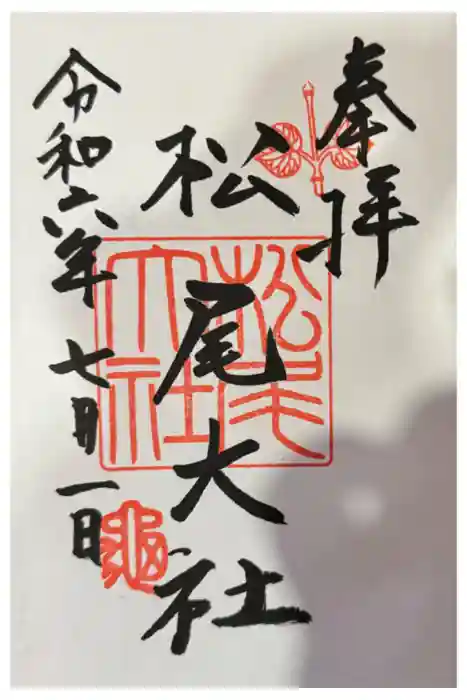 奉拝
松尾大社
松尾大社
令和六年七月一日